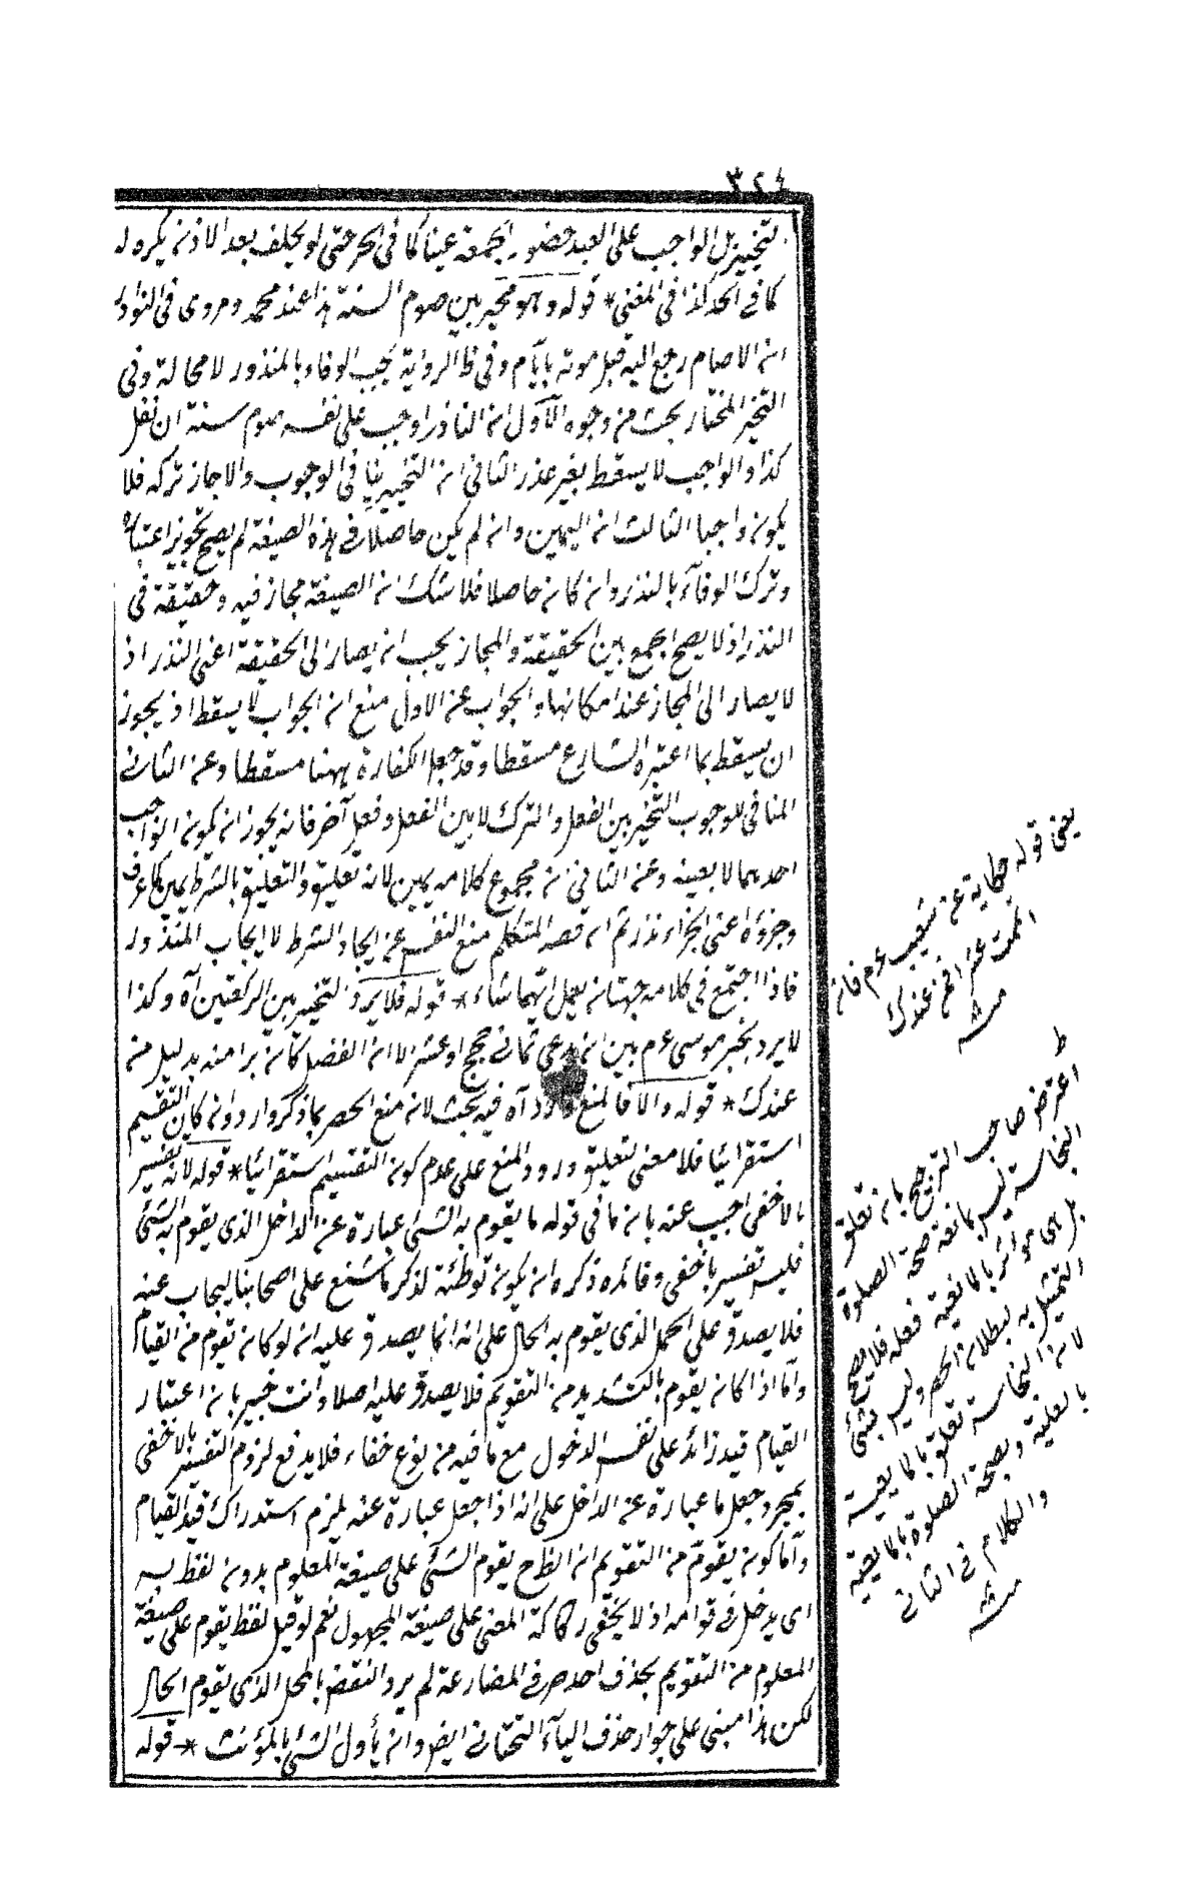 ٣٢٤
لتخييز بل الواجب على العبد حضور الجمعة عينا كما فى الحر حتى لو تخلف بعد الاذن يكره له
كما فى الحد كذا فى المغنى * قوله وهو مخير بين صوم السنة هذا عند محمد ومروى فى النوادر
ان الامام رجع اليه قبل موته بايام وفى ظ الرواية يجب الوفاء بالمنذور لا محالة وفى
التخير المختار بحث من وجوه الاول ان الناذر اوجب على نفسه صوم سنة ان فعل
كذا والواجب لا يسقط بغير عذر الثانى ان التخيير ينافى الوجوب والا جاز تركه فلا
يكون واجبا الثالث ان اليمين وان لم يكن حاصلا فى هذه الصيغة لم يصح تجويز اعتباره
وترك الوفاء بالنذر وان كان حاصلا فلا شك ان الصيغة مجاز فيه وحقيقة فى
النذر اذ لا يصح الجمع بين الحقيقة والمجاز يجب ان يصار الى الحقيقة اعنى النذر اذ
لا يصار الى المجاز عند امكانها والجواب عن الاول منع ان الجواب لا يسقط اذ يجوز
ان يسقط بما اعتبره الشارع مسقطا وقد جعل الكفارة ههنا مسقطا وعن الثانى
المنافى للوجوب التخيير بين الفعل والترك لا بين الفعل وفعل آخر فانه يجوز ان يكون الواجب
احدهما لا بعينه وعن الثانى ان مجموع كلامه يمين لانه تعليق والتعليق بالشرط يمين كما عرف
وجزؤه اعنى الجزاء نذر ثم ان قصد المتكلم منع النفس عن ايجاد الشرط لا ايجاب المنذور
فاذا اجتمع فى كلامه جهتان يعمل ايتهما شاء * قوله فلا يرد التخيير بين الركعتين آه وكذا
لا يرد تخير موسى عم بين ان يرعى ثمانى حجج او عشر الا ان الفضل كان برا منه بدليل من
عندك * قوله والا فالمنع وارد آه فيه بحث لانه منع الحصر بما ذكر وارد وان كان التقسيم
استقرائيا فلا معنى لتعليق ورود المنع على عدم كون التقسيم استقرائيا * قوله لانه تفسير
بالاخفى اجيب عنه بان ما فى قوله ما يقوم به الشئ عبارة عن الداخل الذى يقوم به الشئ
فليس تفسير باخفى وفائده ذكره ان يكون توطئة لذكر ما شنع على اصحابنا ليجاب عنه
فلا يصدق على المحل الذى يقوم به الحال على انه انما يصدق عليه ان لو كان تقوم من القيام
واما اذا كان يقوم بالتشديد من التقويم فلا يصدق عليه اصلا وانت خبير بان اعتبار
القيام قيد زائد على نفس الدخول مع ما فيه من نوع خفاء فلا يدفع لزوم التفسير بالاخفى
بمجرد جعل ما عبارة عن الداخل على انه اذا جعل عبارة عنه يلزم استدراك قيد القيام
واما كون يقوم من التقويم ان الظ ح يقوم الشئ على صيغة المعلوم بدون لفظ به
اى يدخل فى قوامه اذ لا يخفى ركاكة المعنى على صيغة المجهول نعم لو قيل لفظ يقوم على صيغة
المعلوم من التقويم بحذف احد حرفى المضارعة لم يرد النقض بالمحل الذى يقوم الحال
لكن هذا مبنى على جواز حذف الياء التحتانى ايض وان يأول الشئ بالمؤنث * قوله
يعنى قوله حكاية عن شعيب عم فان
اتممت عشرا فمن عندك
منه
ط
اعترض صاحب الترجيح بان تعلق
النجاسة ليس بمانعة صحة الصلوة
بل هى مؤثر بالمانعية فعله فلا يصح
التمثيل به لبطلان الحصر وليس بشئ
لان النجاسة تعلق بالمانعية
بالعلية وبصحة الصلوة بالمانعية
والكلام فى الثانى
منه